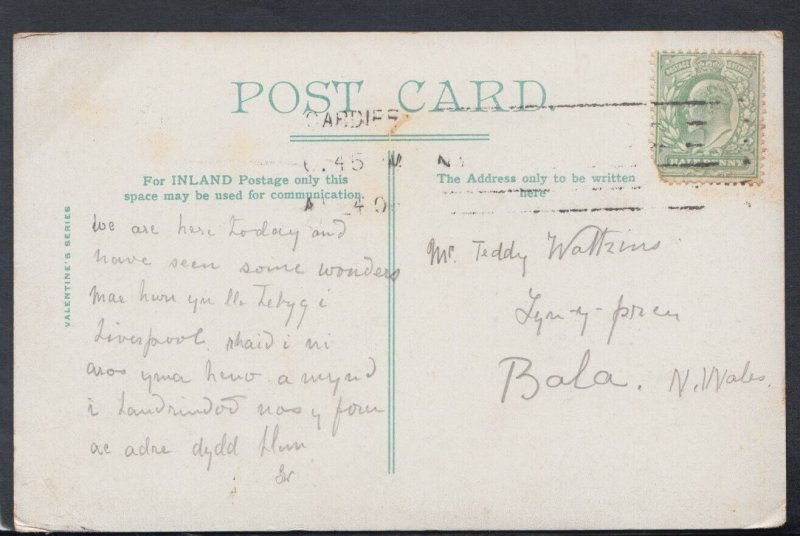 POST CARD.
CARDIFF
.45 M
For INLAND Postage only this
space may be used for communication.
The Address only to be written
here
HALFPENNY
VALENTINE'S SERIES
we are here today and
have seen some wonders
mae hwn yn lle tebyg i
Liverpool. rhaid i ni
aros yma heno a mynd
i Landrindod nos y foru
ac adre dydd Llun
Mr. Teddy Watkins
Bala. N. Wales.